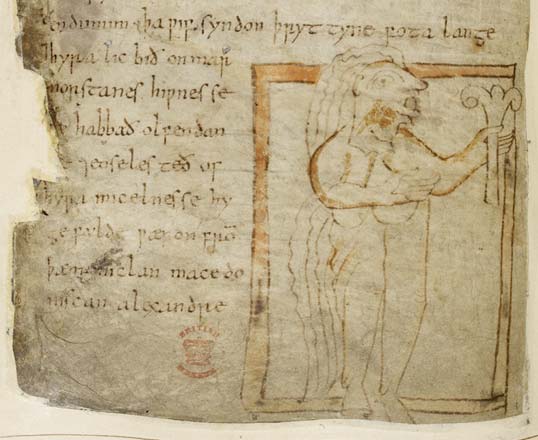 endunum þa ƿif syndon þryttyne fota lange
hyra lic bið on mar
morstanes hiƿnesse
hy habbað olfendan
⁊ eoseles teð of
hyra micelnesse hy
ge fylde ƿæron frō
þæm miclan mace do
niscan alexandre
BRITISH